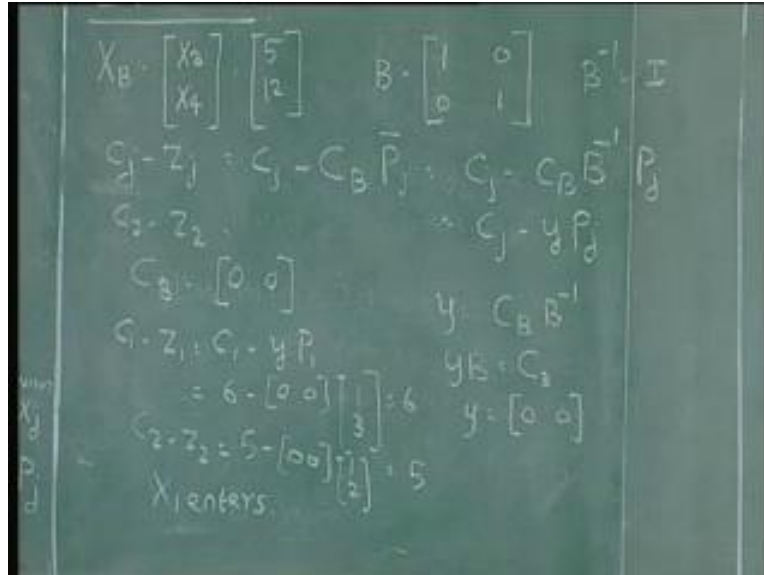 X_B = [X_3 X_4] = [5 12] B = [1 0 0 1] B^-1 = I
C_j - Z_j = C_j - C_B P̄_j = C_j - C_B B^-1 P_j
C_2 - Z_2 = = C_j - y P_j
C_B = [0 0]
y = C_B B^-1
C_1 - Z_1 = C_1 - y P_1
yB = C_B
= 6 - [0 0] [1 3] = 6
y = [0 0]
C_2 - Z_2 = 5 - [0 0] [1 2] = 5
X_1 enters.
X_j
P_j